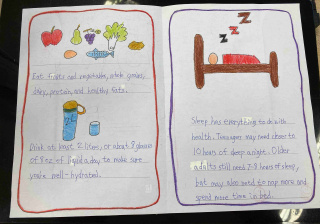 Eat fruits and vegetables, whole grains,
dairy, protein, and healthy fats.
Drink at least 2 liters, or about 8 glasses
of 8 oz, of liquid a day to make sure
you're well-hydrated.
Z
Z
Z
Sleep has everything to do with
health. Teenagers may need closer to
10 hours of sleep a night. Older
adults still need 7-9 hours of sleep,
but may also need to nap more and
spend more time in bed.